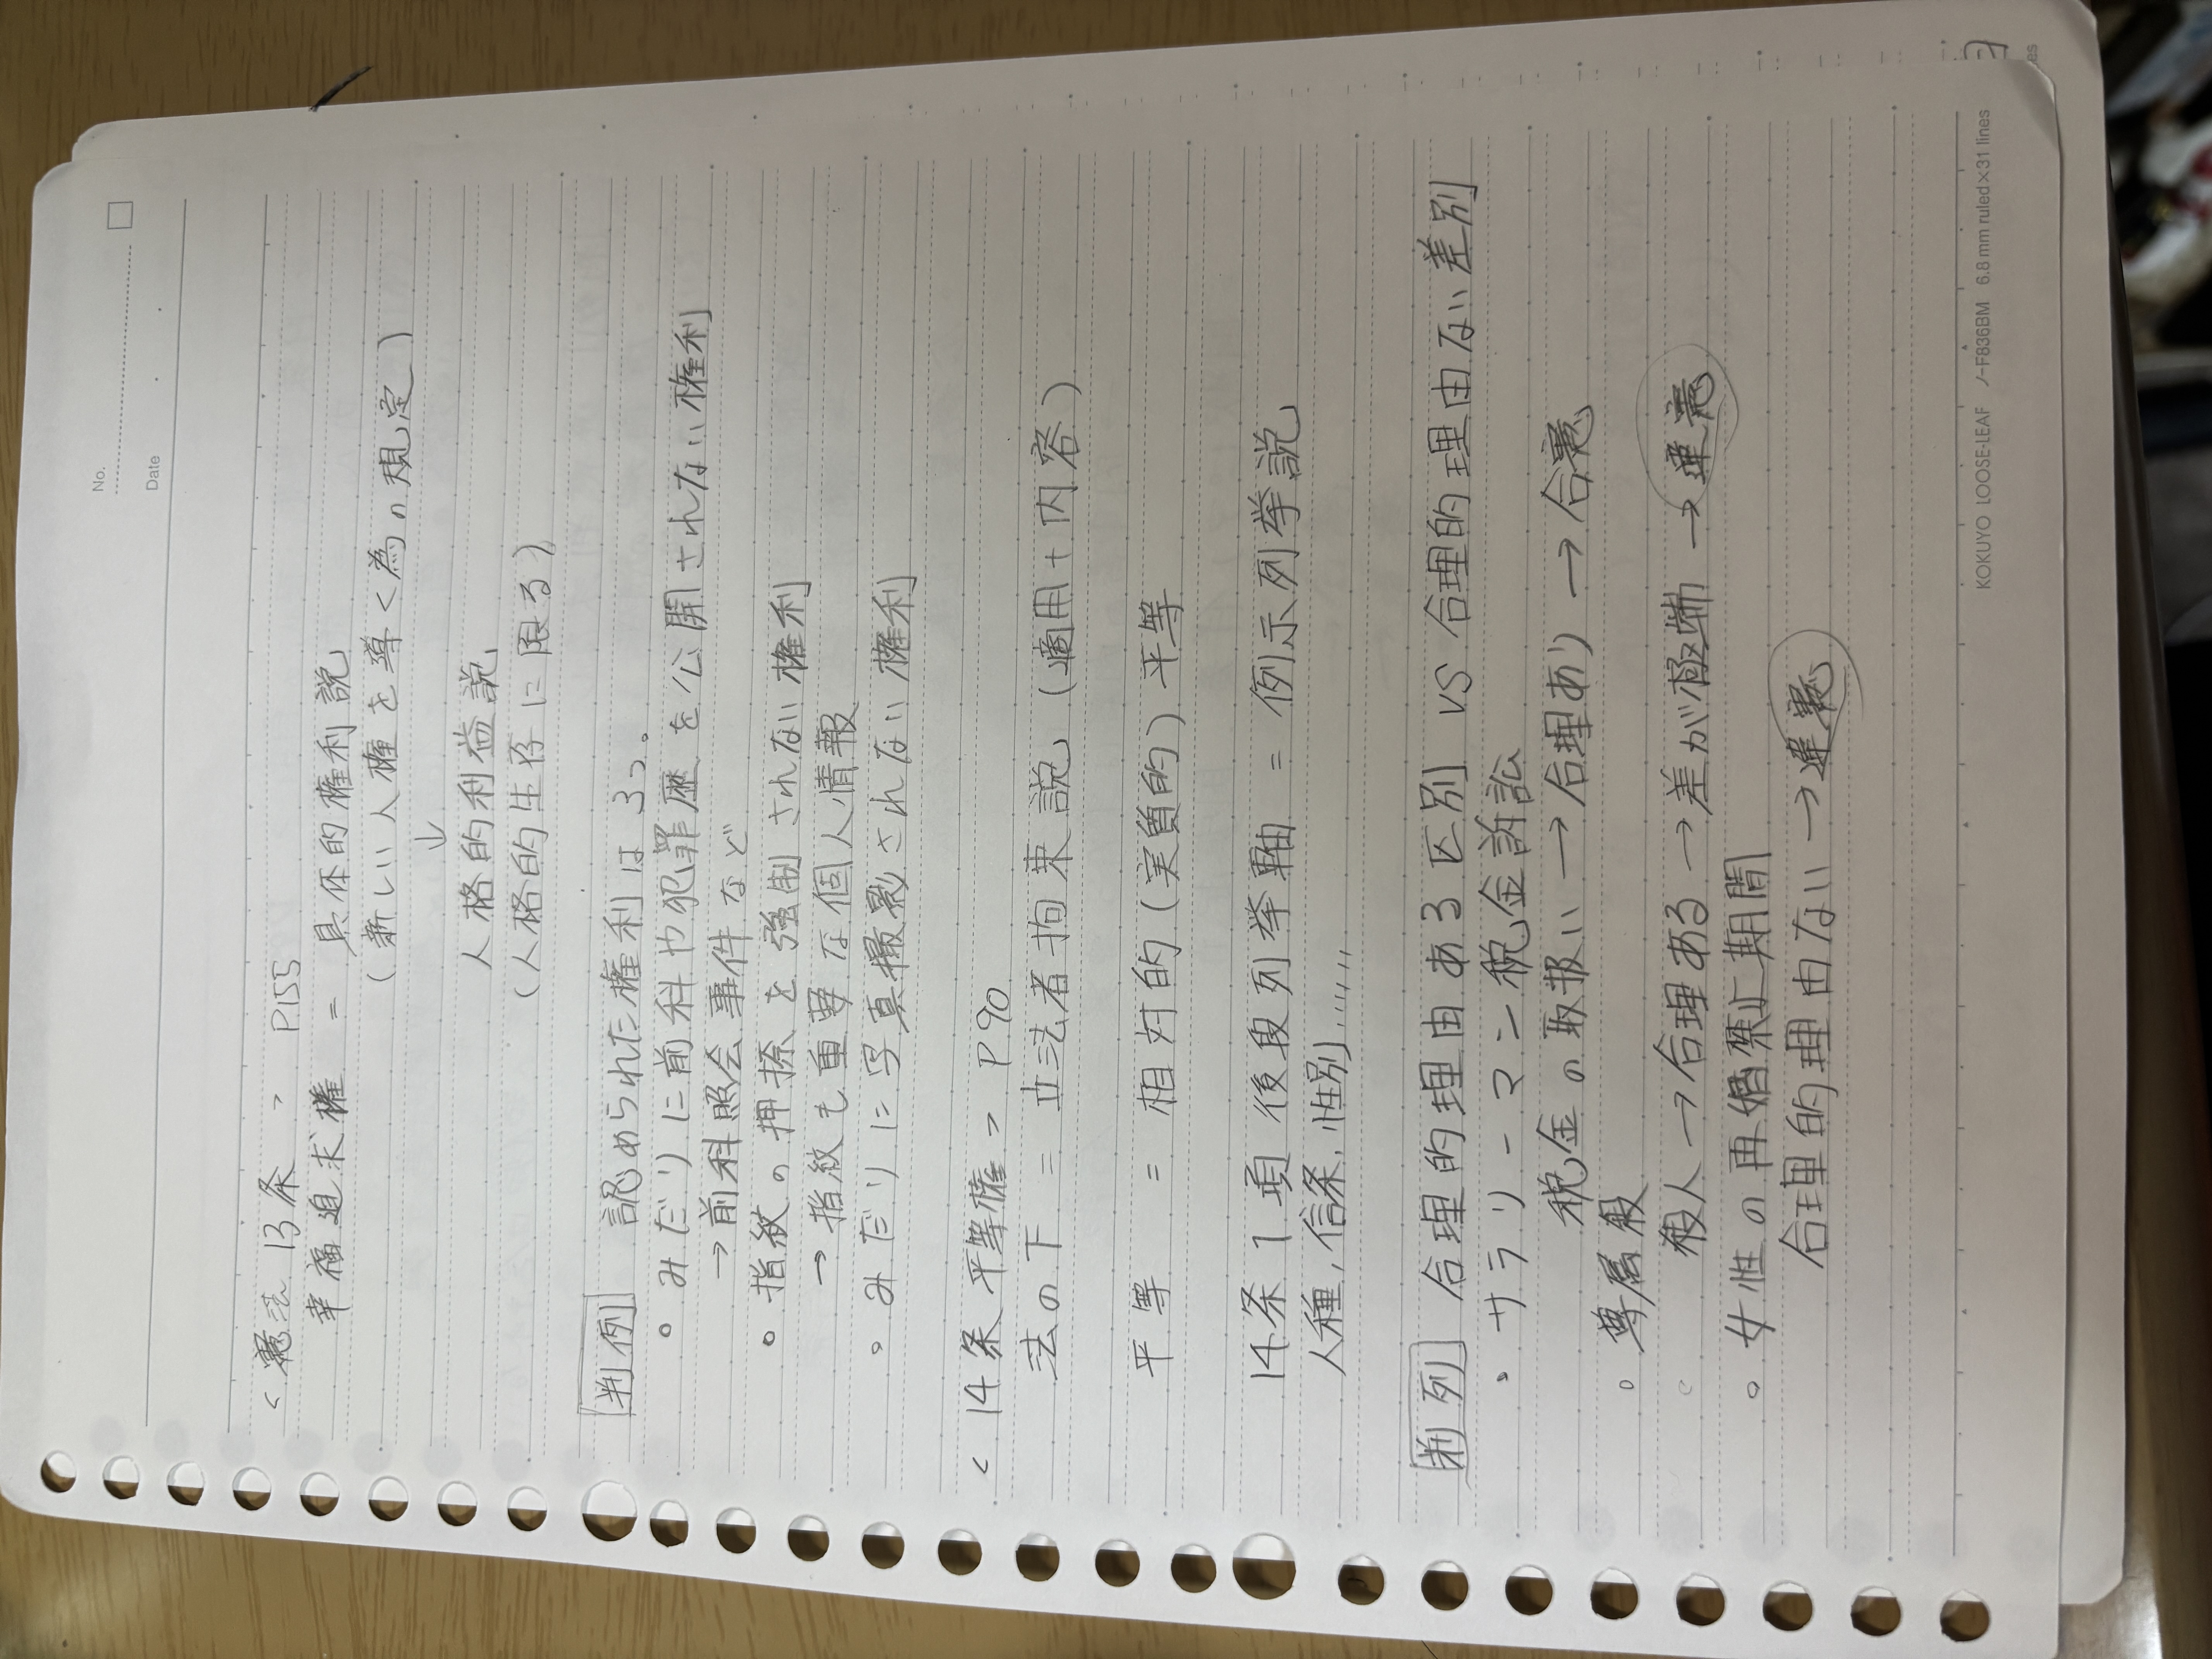 No.
Date
<憲法 13条> P.155
幸福追求権 = 具体的権利説
(新しい人権を導く為の規定)
↓
人格的利益説
(人格的生存に限る)
判例 認められた権利は3つ。
○ みだりに前科や犯罪歴を公開されない権利
→前科照会事件など
○ 指紋の押捺を強制されない権利
→ 指紋も重要な個人情報
○ みだりに写真撮影されない権利
<14条 平等権> P90
法の下 = 立法者拘束説 (適用+内容)
平等 = 相対的(実質的)平等
14条1項 後段列挙軸 = 例示列挙説
人種,信条,性別,,,,,,
判列 合理的理由ある区別 VS 合理的理由ない差別
○ サラリーマン税金訴訟
税金の取扱い → 合理あり → 合憲
○ 尊属殺
殺人→合理ある→差が極端→違憲
○ 女性の再婚禁止期間
合理的理由ない→違憲
KOKUYO LOOSE-LEAF ノ-F836BM 6.8 mm ruled×31 lines
es